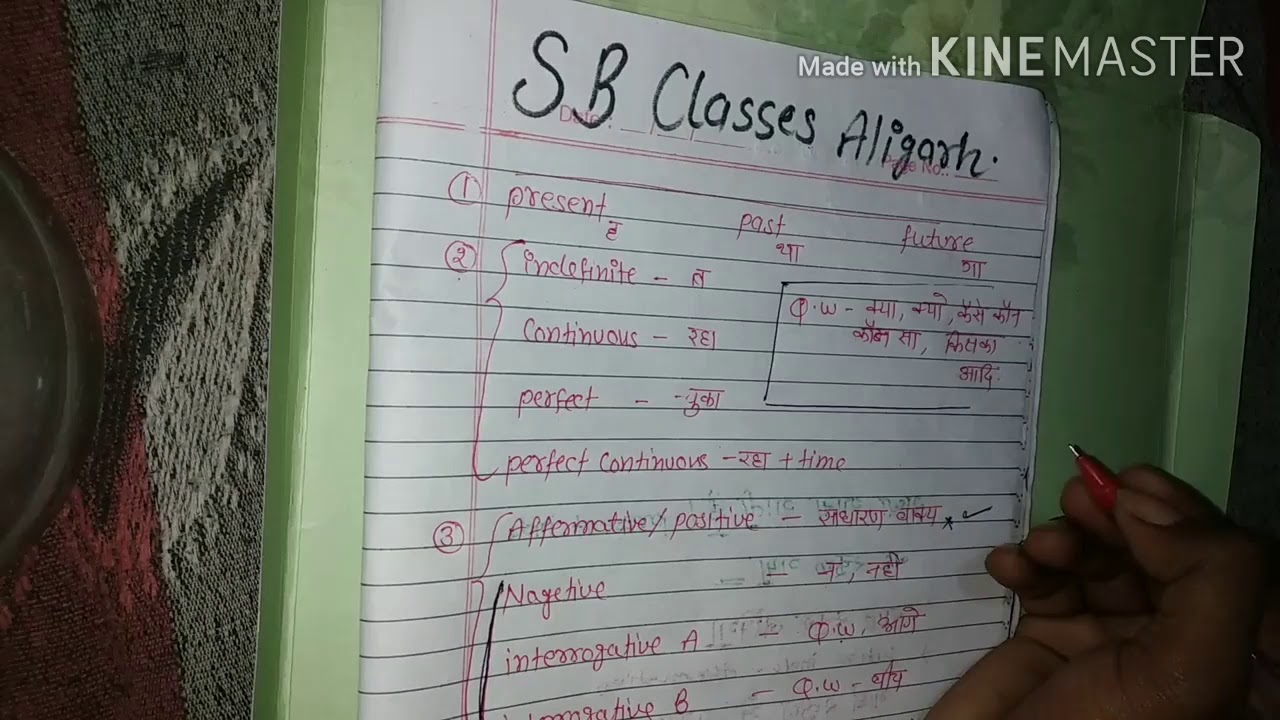 Made with KINEMASTER
S B Classes Aligarh.
① present past future
ह था गा
② indefinite - त
Q.W - क्या, क्यो, कैसे कौन
continuous - रहा
कौन सा, किसका
आदि.
perfect - चुका
perfect continuous - रहा + time
③ Affermative/positive - साधारण वाक्य
Nagetive - न, नही
interrogative A - Q.W, आगे
B - Q.W - बीच